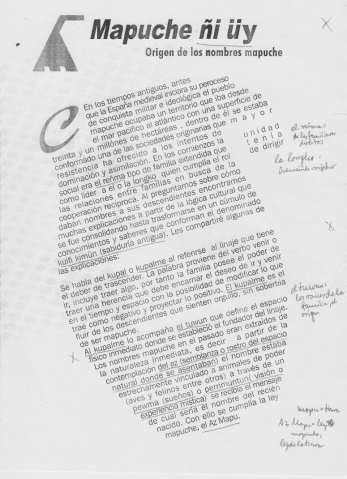 Mapuche ñi üy
Origen de los nombres mapuche
En los tiempos antiguos, antes
que la España medieval iniciara su peroceso
de conquista militar e ideológica el pueblo
mapuche ocupaba un territorio que iba desde
el mar pacífico al atlántico con una superficie de
treinta y un millones de hectáreas, dentro de él se estaba
conformado una de las sociedades originarias que mayor
resistencia ha ofrecido a los intentos de
dominación y asimilación. En los comienzos la unidad
social era el reñma tipo de familia extendida que tenía
como líder a el o la longko quien cumplía el rol de dirigir
las relaciones entre familias en busca de la
cooperación recíproca. Al preguntarnos sobre cómo
daban nombres a sus descendientes encontramos
muchas explicaciones a partir de la lógica cultural que
se fue consolidando hasta trasformarse en un cúmulo de
conocimientos y saberes que conforman el denominado
kuifi kimün (sabiduría antigua). Les compartiré algunas de
las explicaciones:
Se habla del kupal o kupalme al referirse al linaje que tiene
el deber de trascender. La palabra proviene del verbo venir o
ir, incluye traer algo, por tanto la familia posee el poder de
traer una herencia que debe encarnar el deseo de ir y venir
en el tiempo y espacio con la posibilidad de modificar lo que
trae como negativo y proyectar lo positivo. El kupalme es el
fluir de los descendientes que sienten orgullo, sin soberbia
de ser mapuche.
Al kupalme lo acompaña el tuwun que define el espacio
físico inmediato donde se estableció el fundador del linaje.
Los nombres mapuche en el pasado eran extraídos de
la naturaleza inmediata, es decir a partir de la
contemplación del az (semblanza o rostro del espacio
natural donde se asentaban) el nombre estaba
estrechamente vinculado a animales de poder
(aves y felinos entre otros) a través de un
pewma (sueños) o perrimuntun( visión o
experiencia mística) se recibía el mensaje
de cual sería el nombre del recién
nacido. Con ello se cumplía la ley
mapuche, el Az Mapu.
el reñma:
la longko:
el tuwun:
Az Mapu = ley
mapuche